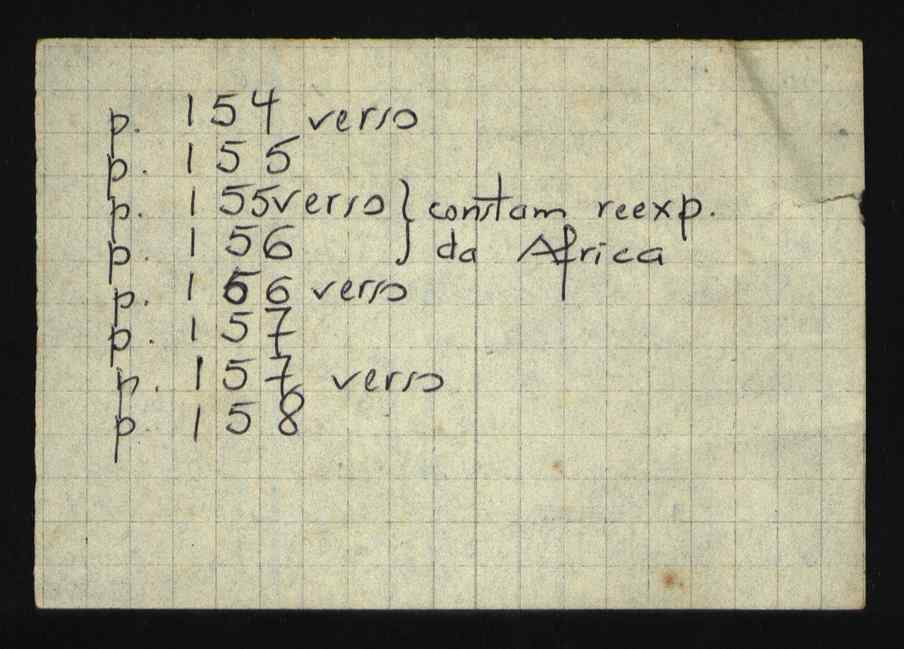 p. 154 verso
p. 155
p. 155 verso } constam reexp.
p. 156 } da Africa
p. 156 verso
p. 157
p. 157 verso
p. 158